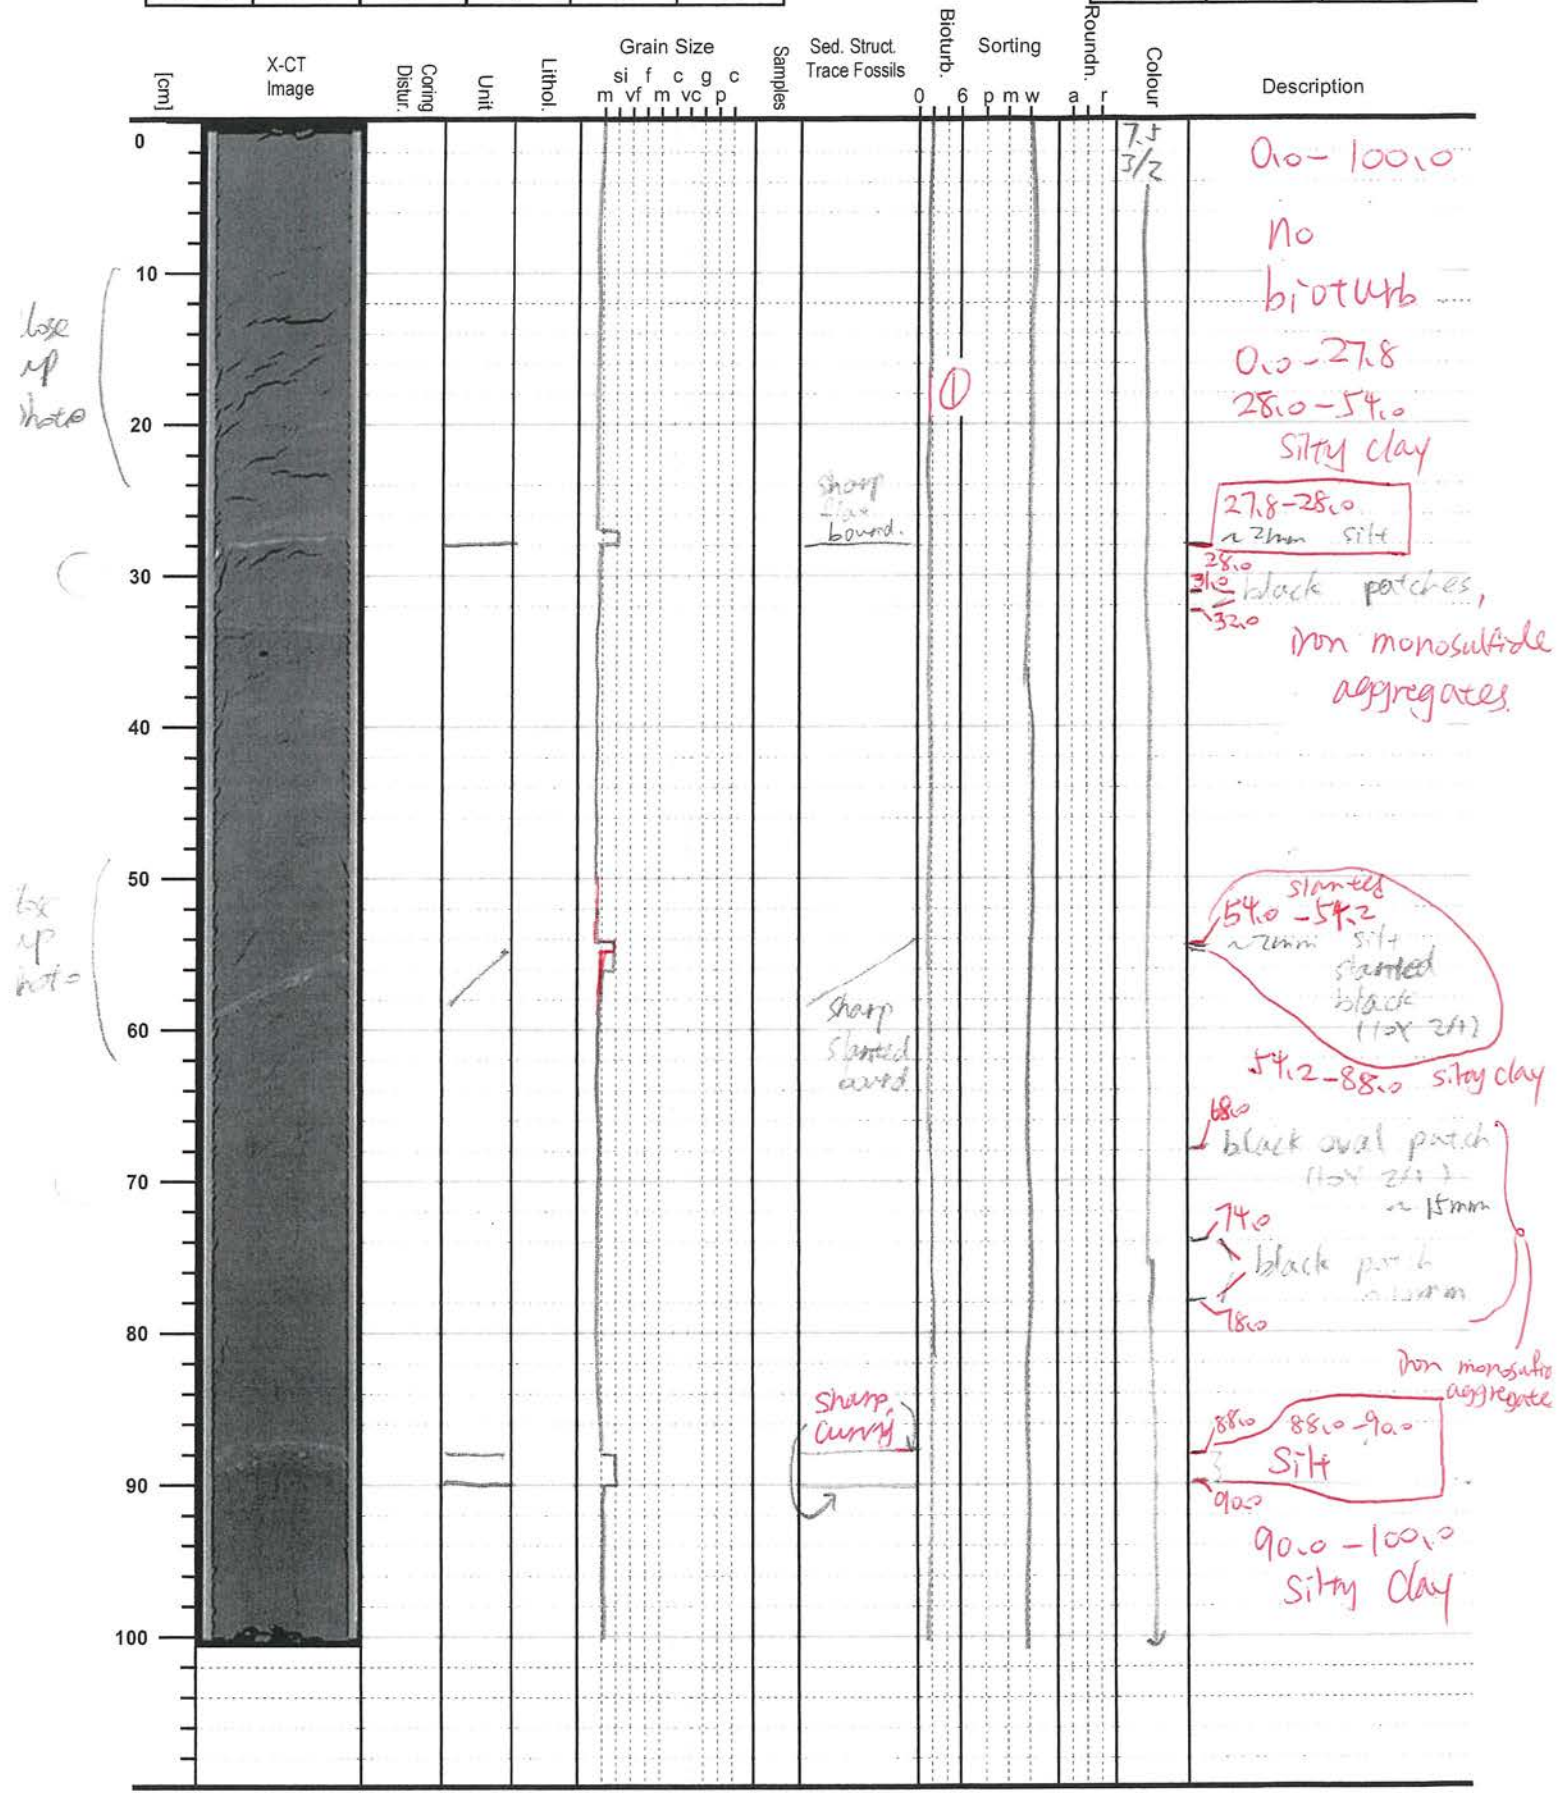 [cm]
X-CT
Image
Coring
Distur.
Unit
Lithol.
Grain Size
si f c g c
m vf m vc p
Samples
Sed. Struct.
Trace Fossils
Bioturb.
0 6
Sorting
p m w
Roundn.
a r
Colour
Description
0
10
20
30
40
50
60
70
80
90
100
lose
up
photo
lose
up
hoto
sharp
bound.
sharp
slanted
bound
sharp,
curvy
①
7.5
3/2
0.0 - 100.0
no
bioturb
0.0 - 27.8
28.0 - 54.0
silty clay
27.8 - 28.0
~ 2mm silt
28.0
31.0
black patches,
32.0
iron monosulfide
aggregates.
slanted
54.0 - 54.2
~ 2mm silt
slanted
black
(10Y 2/1)
54.2 - 88.0 silty clay
68.0
black oval patch
(10Y 2/1)
~ 15mm
74.0
black patch
78.0
iron monosulfi
aggregate
88.0 88.0 - 90.0
silt
90.0
90.0 - 100.0
silty clay